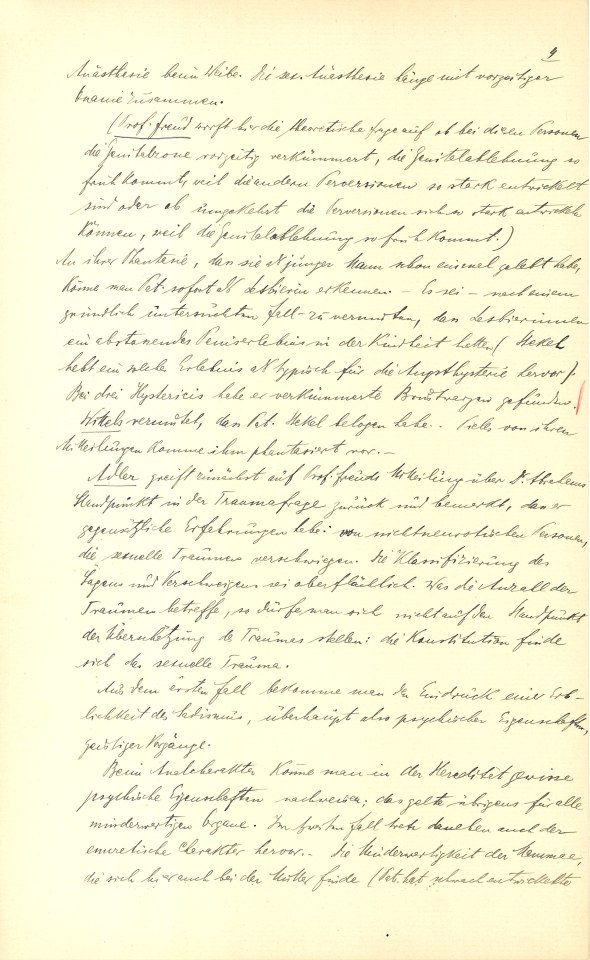 9
Anästhesie beim Weibe. Die sex. Anästhesie hänge mit vorzeitiger
Onanie zusammen.
(Prof. Freud wirft hier die theoretische Frage auf ob bei diesen Personen
die Genitalzone vorzeitig verkümmert, die Genitalablehnung so
früh kommt, weil die andern Perversionen so stark entwickelt
sind oder ob umgekehrt die Perversionen sich so stark entwickeln
können, weil die Genitalablehnung so früh kommt.)
An ihrer Phantasie, dass sie als junger Mann schon einmal gelebt habe,
könne man Pat. sofort als Lesbierin erkennen. – Es sei – nach einem
gründlich untersuchten Fall – zu vermuten, dass Lesbierinnen
ein abstossendes Peniserlebnis in der Kindheit hatten (Stekel
hebt ein solches Erlebnis als typisch für die Angsthysterie hervor).
Bei drei Hystericis habe er verkümmerte Brustwarzen gefunden.
Wittels vermutet, dass Pat. Stekel belogen habe. Vieles von ihren
Mitteilungen komme ihm phantasiert vor. –
Adler greift zunächst auf Prof. Freuds Mitteilung über Dr. Abrahams
Standpunkt in der Traumafrage zurück und bemerkt, dass er
gegensätzliche Erfahrungen habe: von nichtneurotischen Personen,
die sexuelle Traumen verschwiegen. Die Klassifizierung des
Sagens und Verschweigens sei oberflächlich. Was die Anzahl der
Traumen betreffe, so dürfe man sich nicht auf den Standpunkt
der Überschätzung des Traumas stellen: die Konstitution finde
sich das sexuelle Trauma.
Aus dem ersten Fall bekomme man den Eindruck einer Erb-
lichkeit des Sadismus, überhaupt also psychischer Eigenschaften,
geistiger Vorgänge.
Beim Analcharakter könne man in der Heredität gewisse
psychische Eigenschaften nachweisen; das gelte übrigens für alle
minderwertigen Organe. Im zweiten Fall trete daneben auch der
enuretische Charakter hervor. – Die Minderwertigkeit der Mammae,
die sich hier auch bei der Mutter finde (Pat. hat schwach entwickelte